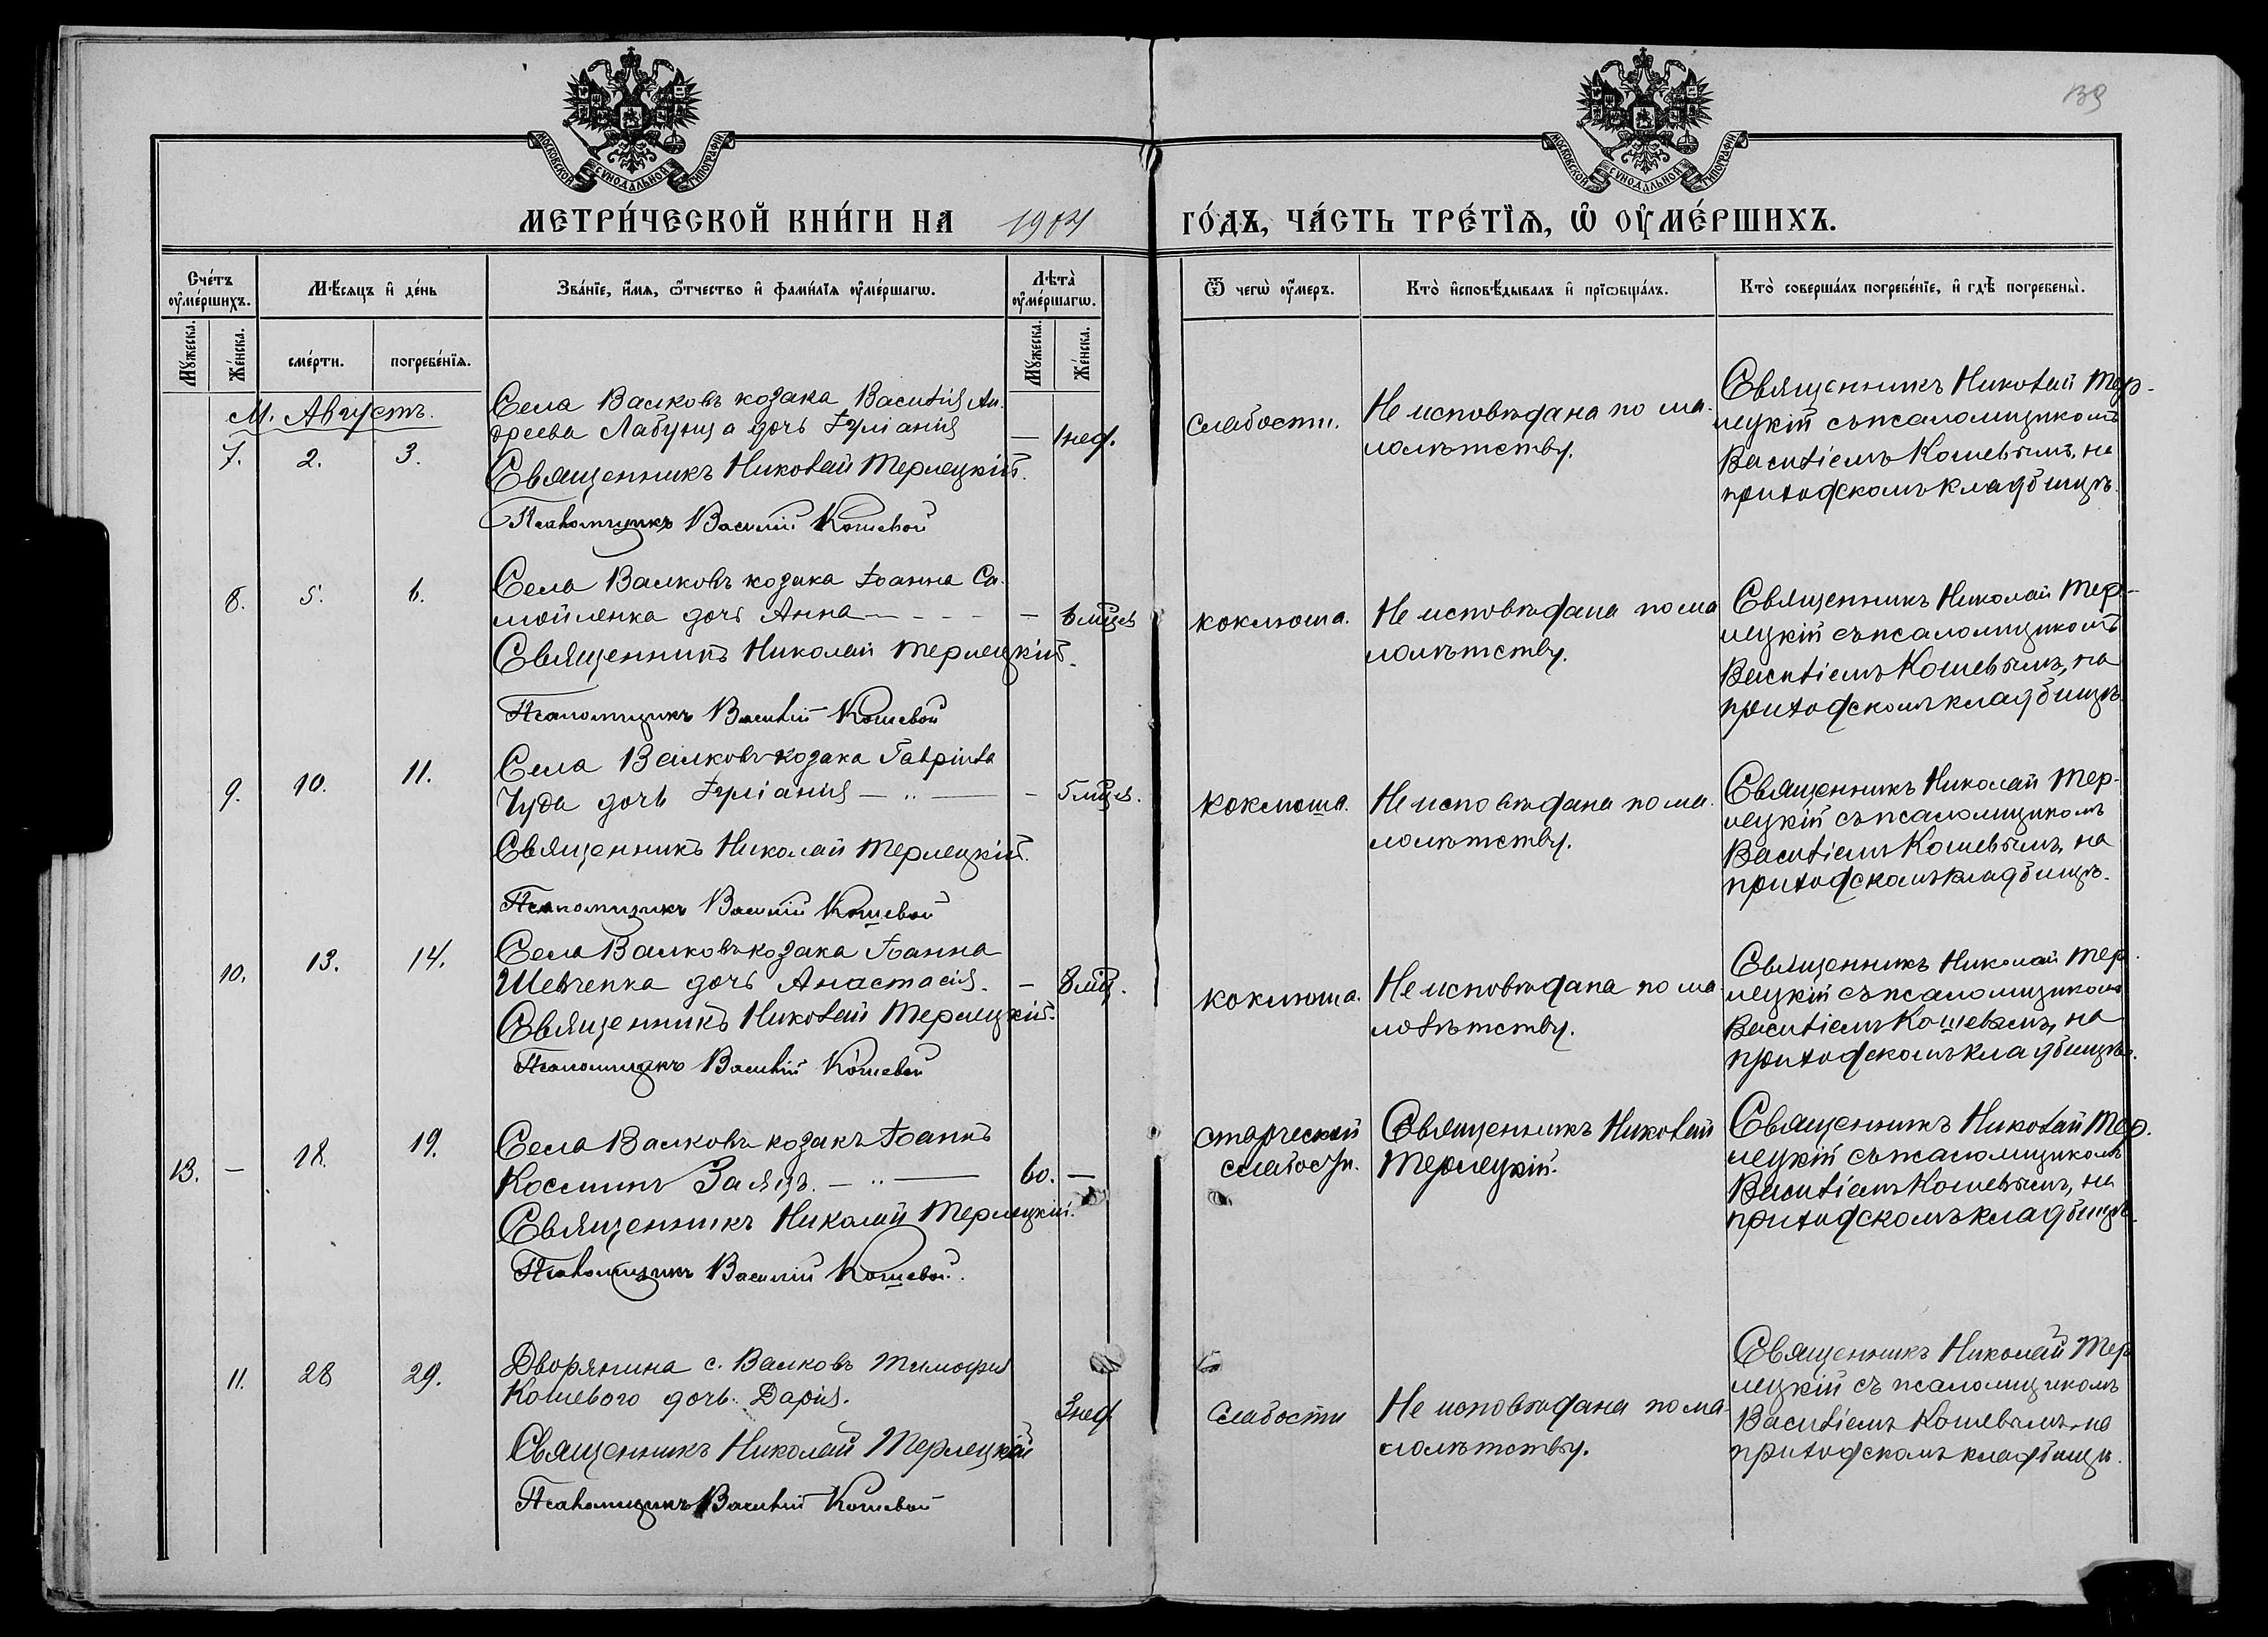 139
МОСКОВСКОЙ СѴНОДАЛЬНОЙ ТИПОГРАФІИ
МОСКОВСКОЙ СѴНОДАЛЬНОЙ ТИПОГРАФІИ
МЕТРИ́ЧЕСКОЙ КНИ́ГИ НА 1904 ГО́ДЪ, ЧА́СТЬ ТРЕ́ТЇѦ, Ѡ҆ ОУ҆МЕ́РШИХЪ.
Сче́тъ оу҆ме́ршихъ.
Мѣ́сяцъ и҆ де́нь
Зва́нїе, и҆́мѧ, ѻ҆́тчество и҆ фами́лїѧ оу҆ме́ршагѡ.
Лѣта̀ оу҆ме́ршагѡ.
Ѿ чегѡ̀ оу҆́меръ.
Кто̀ и҆сповѣ́дывалъ и҆ прїѡбща́лъ.
Кто̀ соверша́лъ погребе́нїе, и҆ гдѣ̀ погребены̀.
Мꙋ́жеска.
Же́нска.
сме́рти.
погребе́нїѧ.
Мꙋ́жеска.
Же́нска.
М. Августъ.
7. 2. 3.
Села Валковъ козака Василія Ан-
дреева Лабунца дочь Іуліанія — 1 нед.
Священникъ Николай Терлецкій.
Псаломщикъ Василій Кошевой
слабости.
Не исповѣдана по ма-
лолѣтству.
Священникъ Николай Тер-
лецкій съ псаломщикомъ
Василіемъ Кошевымъ, на
приходскомъ кладбищѣ.
8. 5. 6.
Села Валковъ козака Іоанна Са-
мойленка дочь Анна — - - - — 6 мцев
Священникъ Николай Терлецкій.
Псаломщикъ Василій Кошевой
коклюша.
Не исповѣдана по ма
лолѣтству.
Священникъ Николай Тер-
лецкій съ псаломщикомъ
Василіемъ Кошевымъ, на
приходскомъ кладбищѣ.
9. 10. 11.
Села Валковъ козака Гавріила
Чуда дочь Іуліанія — " — — 5 мцев.
Священникъ Николай Терлецкій.
Псаломщикъ Василій Кошевой
коклюша.
Не исповѣдана по ма-
лолѣтству.
Священникъ Николай Тер-
лецкій съ псаломщикомъ
Василіемъ Кошевымъ, на
приходскомъ кладбищѣ.
10. 13. 14.
Села Валковъ козака Іоанна
Шевченка дочь Анастасія. — 8 мцр.
Священникъ Николай Терлецкій.
Псаломщикъ Василій Кошевой
коклюша.
Не исповѣдана по ма
лолѣтству.
Священникъ Николай Тер-
лецкій съ псаломщикомъ
Василіемъ Кошевымъ, на
приходскомъ кладбищѣ.
13. — 18. 19.
Села Валковъ козакъ Іоаннъ
Косминъ Заяцъ. — " — 60. —
Священникъ Николай Терлецкій.
Псаломщикъ Василій Кошевой.
старческой
слабости.
Священникъ Николай
Терлецкій.
Священникъ Николай Тер-
лецкій съ псаломщикомъ
Василіемъ Кошевымъ, на
приходскомъ кладбищѣ.
11. 28 29.
Дворянина с. Валковъ Тимофея
Кошевого дочь Дарія. 3 нед
Священникъ Николай Терлецкій
Псаломщикъ Василій Кошевой
Слабости
Не исповѣдана по ма-
лолѣтству.
Священникъ Николай Тер
лецкій съ псаломщикомъ
Василіемъ Кошевымъ на
приходскомъ кладбищѣ.